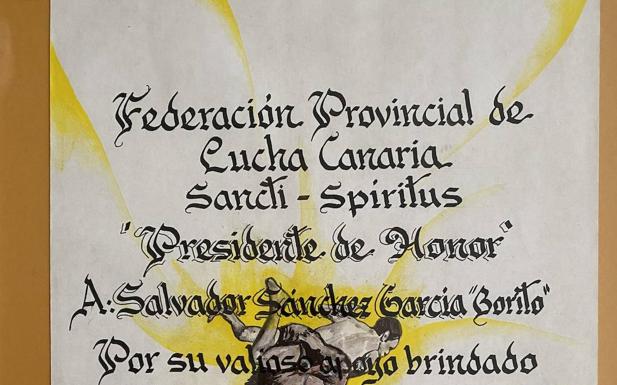 Federación Provincial de
Lucha Canaria
Sancti - Spiritus
"Presidente de Honor"
A: Salvador Sánchez Garcia "Borito"
Por su valioso apoyo brindado